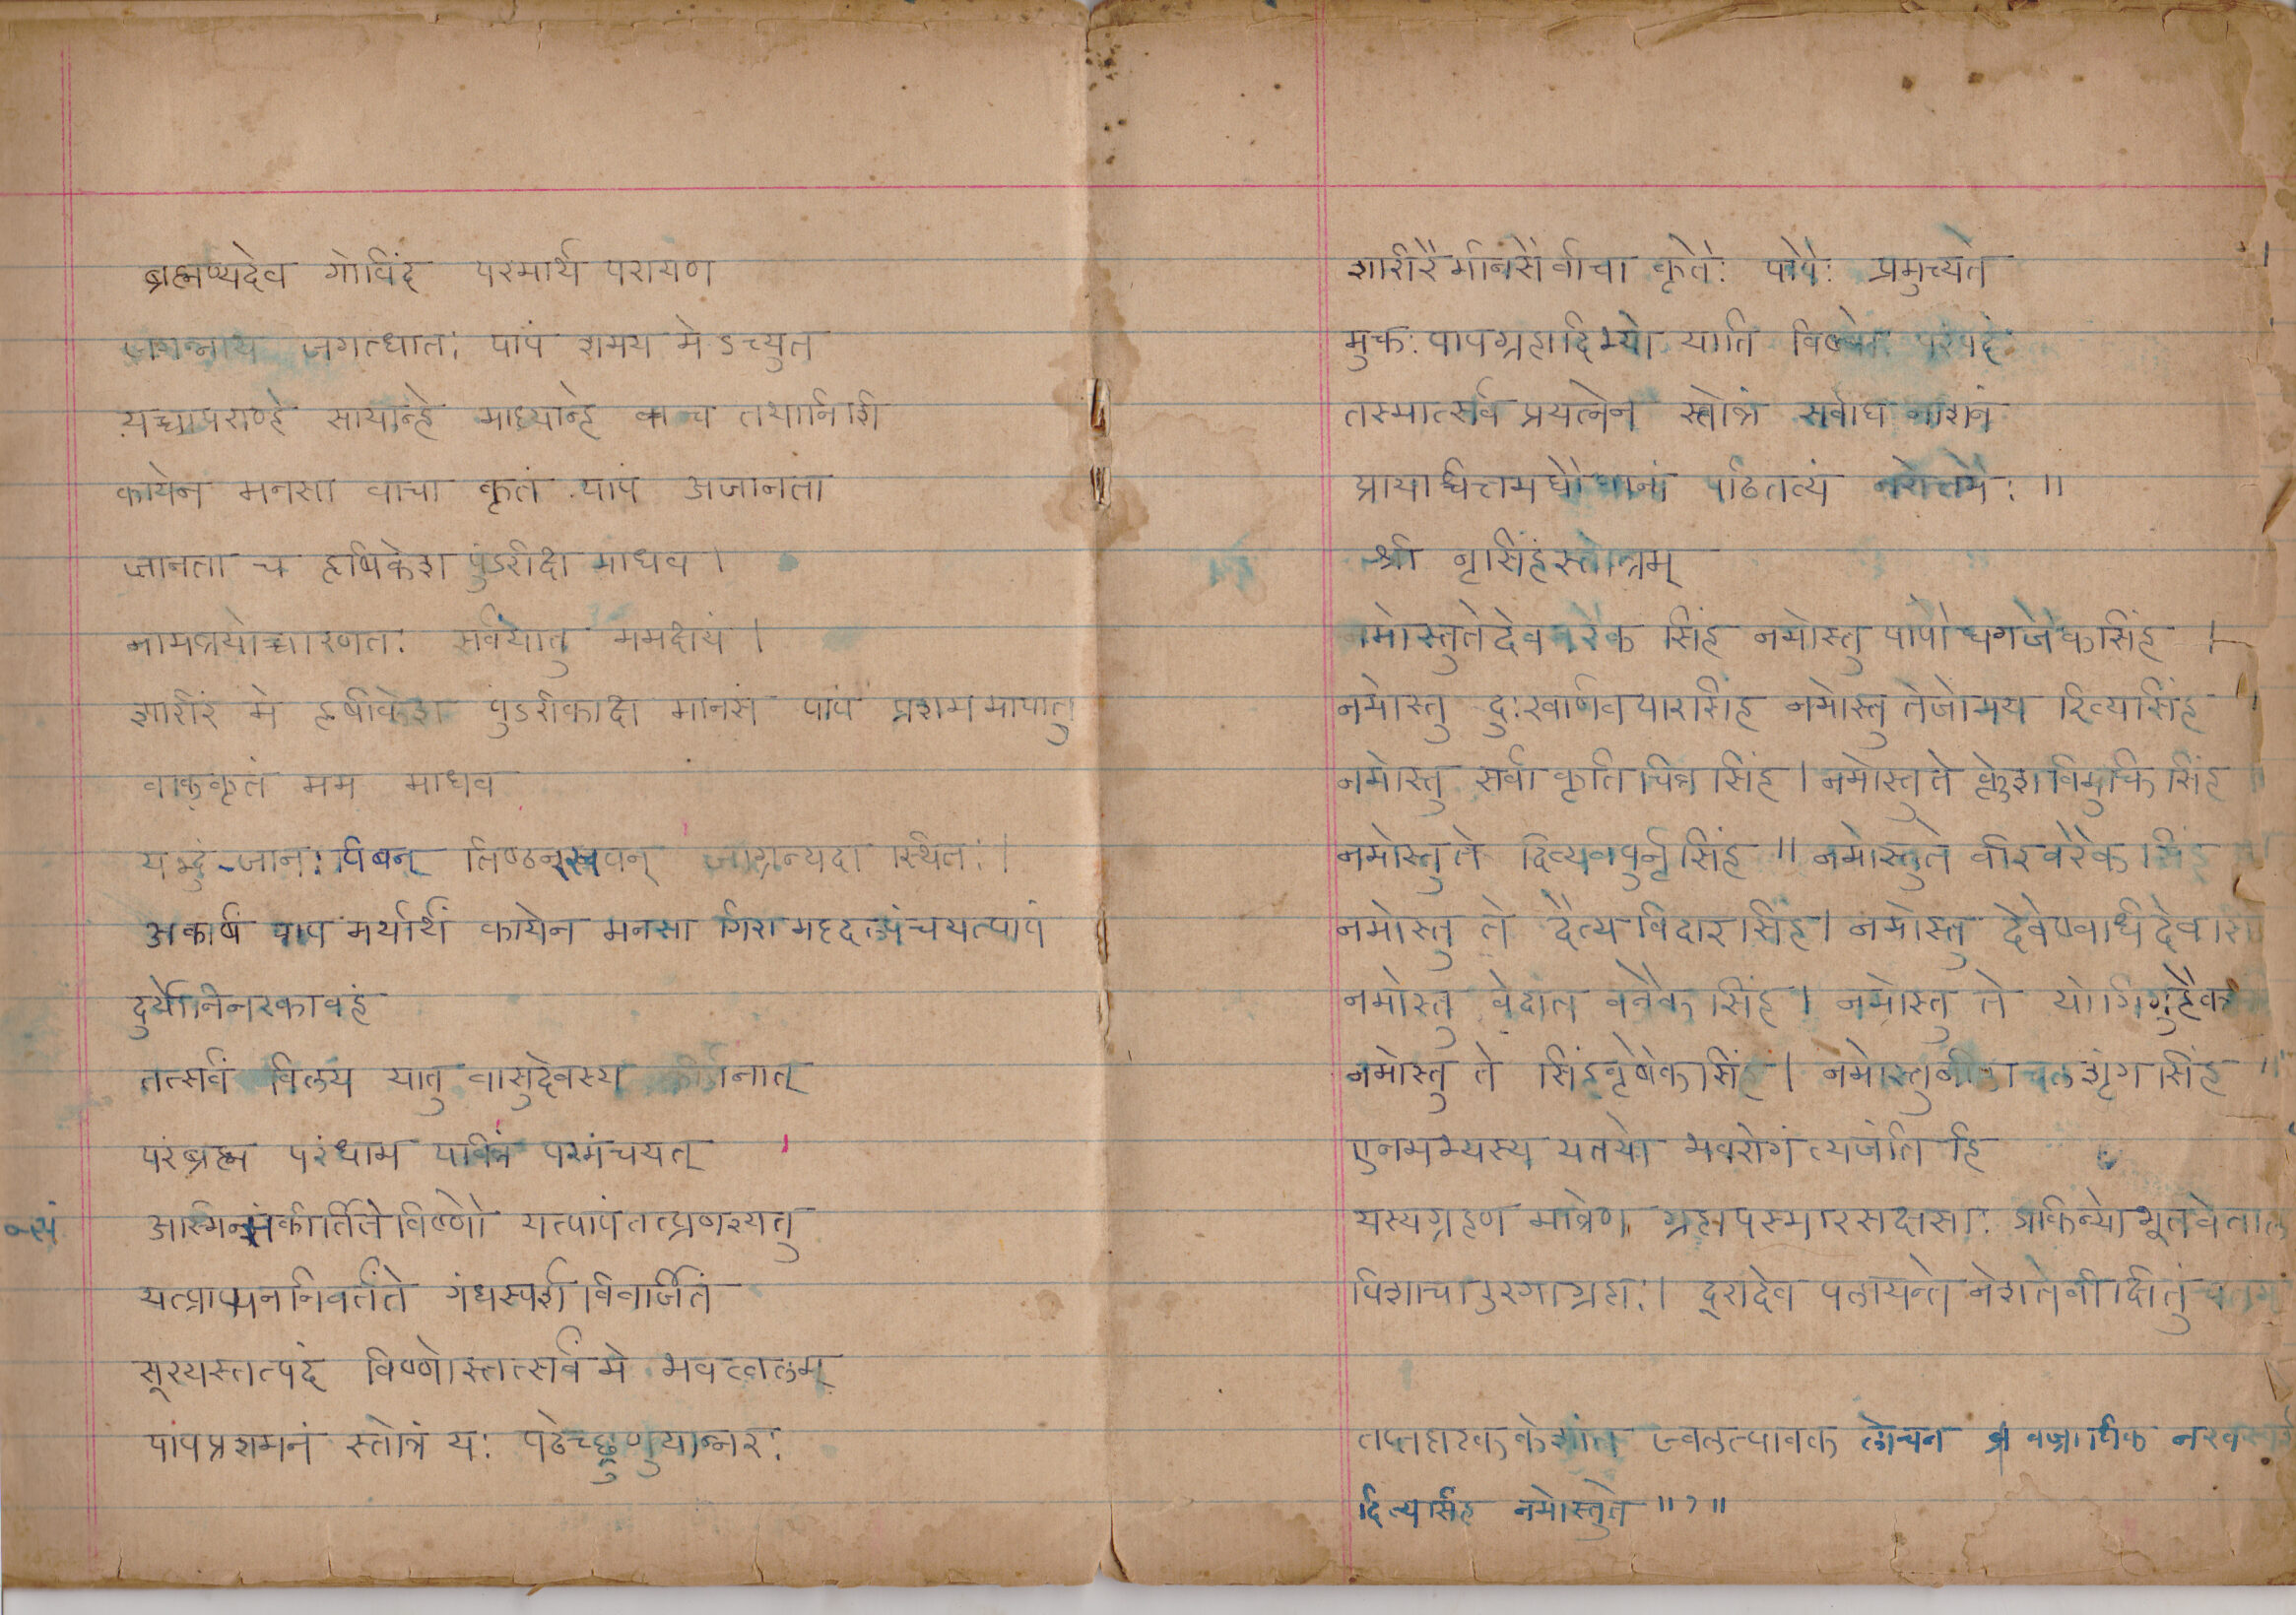 ब्रह्मण्यदेव गोविंद परमार्थ परायण
जगन्नाथ जगत्धात: पापं शमय मे ऽच्युत
यच्चापराण्हे सायान्हे माध्यान्हे वा च तथानिशि
कायेन मनसा वाचा कृतं पापं अजानता
जानता च हृषिकेश पुंडरीक्ष माधव ।
नामत्रयोच्चारणत: सर्वंयातु ममक्षयं ।
शारीरं मे हृषीकेश पुंडरीकाक्ष मानसं पापं प्रशममायातु
वाक्कृतं मम माधव
यद्भुं-जान: पिबन् तिष्ठन्स्वपन् जाग्रन्यदा स्थित: ।
अकार्षं पाप मर्थार्थं कायेन मनसा गिरा महदल्पंचयत्पापं
दुर्योनिनरकावहं
तत्सर्वं विलयं यातु वासुदेवस्य
परंब्रह्म परंधाम पवित्रं परमंचयत्
अस्मिन्संकीर्तिते विष्णो यत्पापंतत्प्रणश्यतु
यत्प्राप्यननिवर्तंते गंधस्पर्श विवर्जितं
सूरयस्तत्पदं विष्णोस्तत्सर्वं मे भवत्वलम्
पापप्रशमनं स्तोत्रं य: पठेच्छ्रुणुयान्नर:
शारीरैर्मानसैर्वाचा कृतै: पापै: प्रमुच्यते
मुक्त: पापग्रहादिभ्यो याति विष्णो: परंपदं
तस्मात्सर्व प्रयत्नेन स्तोत्रं सर्वाघ नाशनं
प्रायाश्चित्तमघौघानां पठितव्यं नरोत्तमै: ॥
श्री नृसिंहस्तोत्रम्
नमोस्तुतेदेववरैक सिंह नमोस्तु पापौघगजैकसिंह ।
नमोस्तु दु:खार्णवपारसिंह नमोस्तु तेजोमय दिव्यसिंह
नमोस्तु सर्वाकृतिचित्रसिंह । नमोस्तुते क्लेशविमुक्तिसिंह
नमोस्तु ते दिव्यवपुर्नृसिंह ॥ नमोस्तुते वीरवरैक सिंह
नमोस्तु ते दैत्यविदारसिंह । नमोस्तु
नमोस्तु वेदांत वनैकसिंह । नमोस्तु ते योगिगुहैक
नमोस्तु ते सिंहवृषैकसिंह । नमोस्तुनीलाचलशृंगसिंह ॥
एनमभ्यस्य यतयो भवरोगं त्यजंति हि
यस्यग्रहण मात्रेण ग्रहापस्माररक्षसा: डाकिन्यो भूतवेताल
पिशाचाउरगाग्रहा: । दूरादेव पलायन्ते नेशतेवीक्षितुं
तप्तहाटक केशांत ज्वलत्पावक लोचन वज्राधिक नख
दिव्यसिंह नमोस्तुते ॥ १ ॥